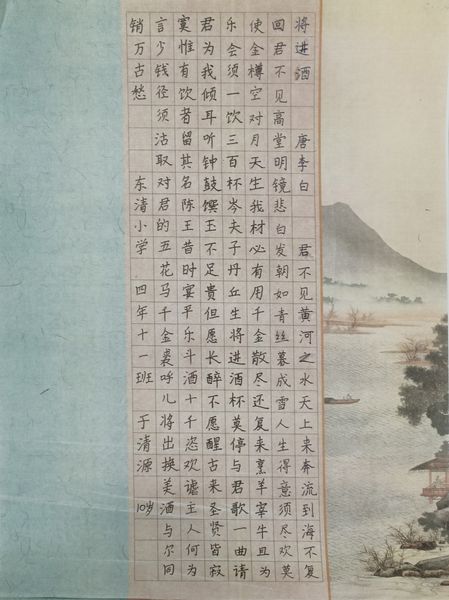 将进酒 唐李白 君不见黄河之水天上来奔流到海不复
回君不见高堂明镜悲白发朝如青丝暮成雪人生得意须尽欢莫
使金樽空对月天生我材必有用千金散尽还复来烹羊宰牛且为
乐会须一饮三百杯岑夫子丹丘生将进酒杯莫停与君歌一曲请
君为我倾耳听钟鼓馔玉不足贵但愿长醉不愿醒古来圣贤皆寂
寞惟有饮者留其名陈王昔时宴平乐斗酒十千恣欢谑主人何为
言少钱径须沽取对君的五花马千金裘呼儿将出换美酒与尔同
销万古愁 东清小学 四年十一班 于清源 10岁